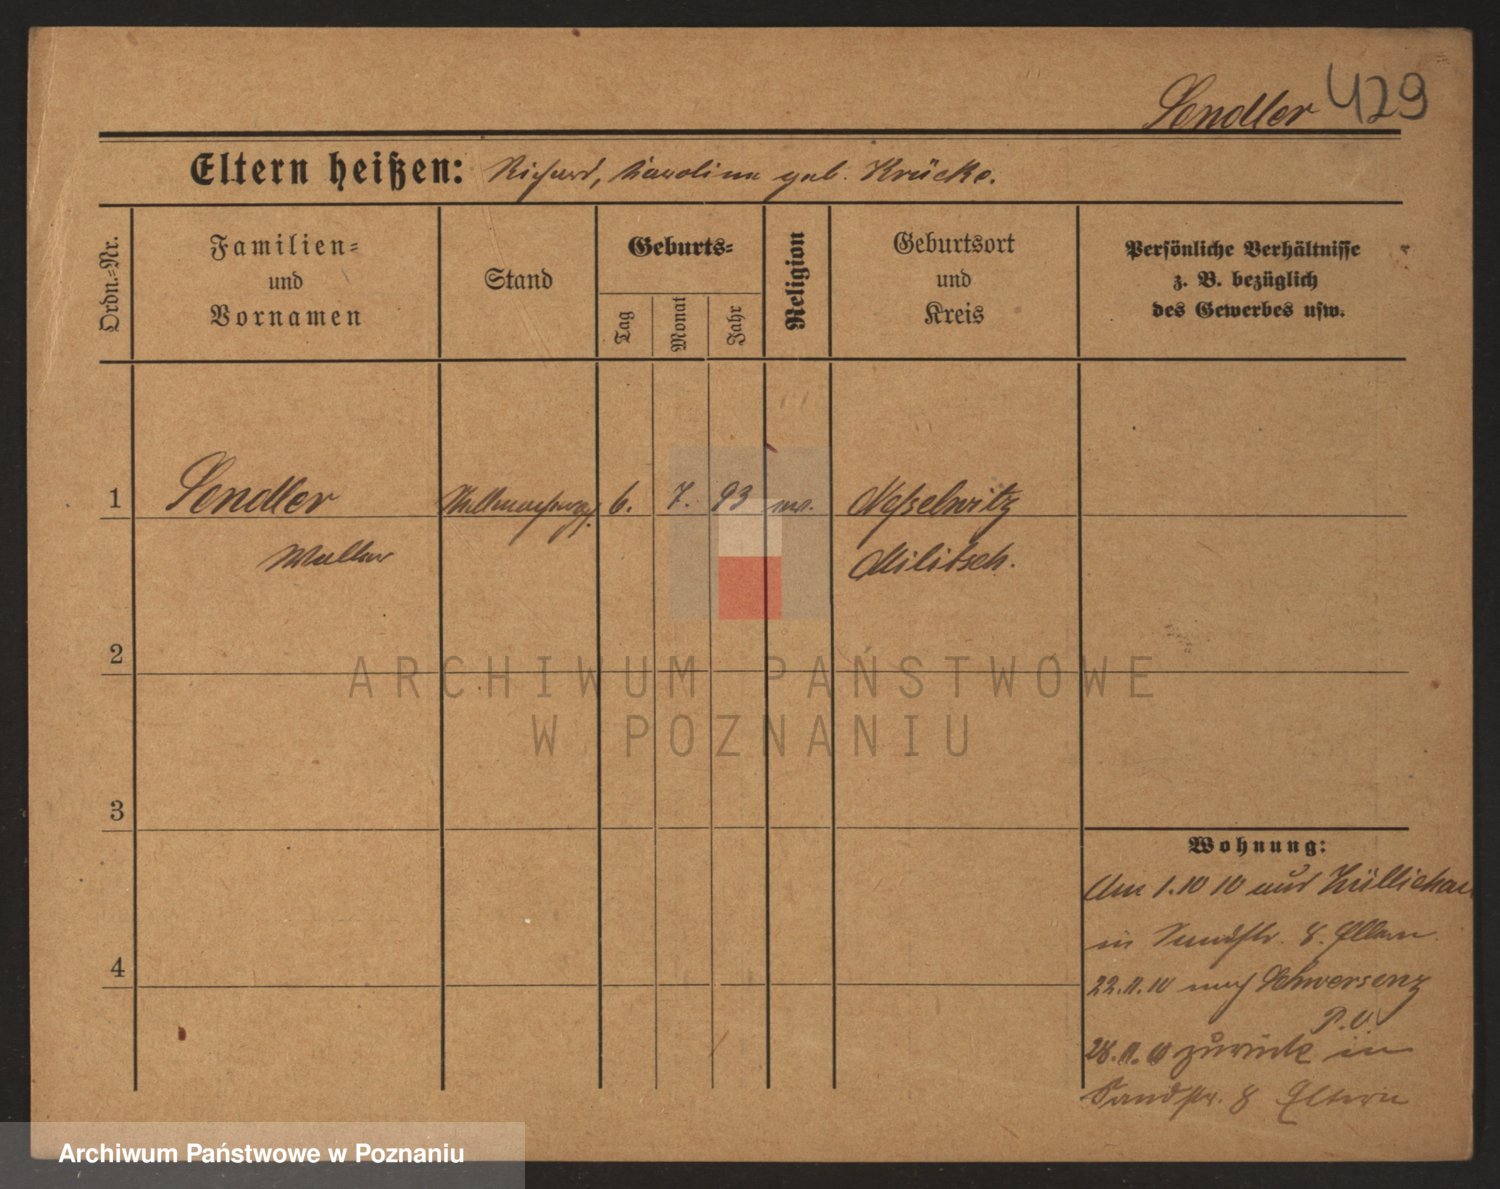 Sendler 429
Eltern heißen: Richard, Karoline geb. Krücke.
Ordn.-Nr.
Familien-
und
Vornamen
Stand
Geburts-
Tag
Monat
Jahr
Religion
Geburtsort
und
Kreis
Persönliche Verhältnisse
z. B. bezüglich
des Gewerbes usw.
1 Sendler 6. 7. 93 Nesselwitz
Walter Militsch.
2
3
4
Wohnung:
Am 1.10 10 aus Züllichau
in Sandstr. 8. Eltern.
22.11.10 nach Schwersenz
P.O.
28.11.10 zurück in
Sandstr. 8 Eltern
ARCHIWUM PAŃSTWOWE
W POZNANIU
Archiwum Państwowe w Poznaniu